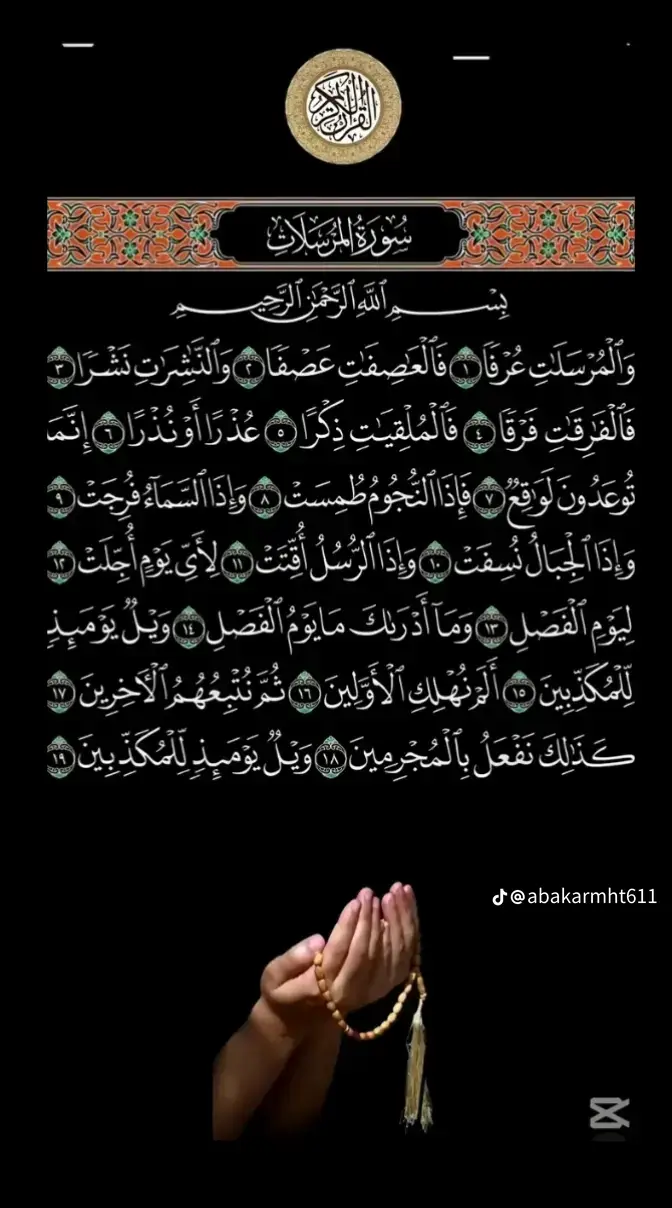 القرآن الكريم
سُورَةُ المُرْسَلَاتِ
بِسْمِ ٱللَّهِ ٱلرَّحْمَٰنِ ٱلرَّحِيمِ
وَٱلْمُرْسَلَٰتِ عُرْفًا ١ فَٱلْعَٰصِفَٰتِ عَصْفًا ٢ وَٱلنَّٰشِرَٰتِ نَشْرًا ٣
فَٱلْفَٰرِقَٰتِ فَرْقًا ٤ فَٱلْمُلْقِيَٰتِ ذِكْرًا ٥ عُذْرًا أَوْ نُذْرًا ٦ إِنَّمَا
تُوعَدُونَ لَوَٰقِعٌ ٧ فَإِذَا ٱلنُّجُومُ طُمِسَتْ ٨ وَإِذَا ٱلسَّمَآءُ فُرِجَتْ ٩
وَإِذَا ٱلْجِبَالُ نُسِفَتْ ١٠ وَإِذَا ٱلرُّسُلُ أُقِّتَتْ ١١ لِأَىِّ يَوْمٍ أُجِّلَتْ ١٢
لِيَوْمِ ٱلْفَصْلِ ١٣ وَمَآ أَدْرَىٰكَ مَا يَوْمُ ٱلْفَصْلِ ١٤ وَيْلٌ يَوْمَئِذٍ
لِّلْمُكَذِّبِينَ ١٥ أَلَمْ نُهْلِكِ ٱلْأَوَّلِينَ ١٦ ثُمَّ نُتْبِعُهُمُ ٱلْءَاخِرِينَ ١٧
كَذَٰلِكَ نَفْعَلُ بِٱلْمُجْرِمِينَ ١٨ وَيْلٌ يَوْمَئِذٍ لِّلْمُكَذِّبِينَ ١٩
@abakarmht611